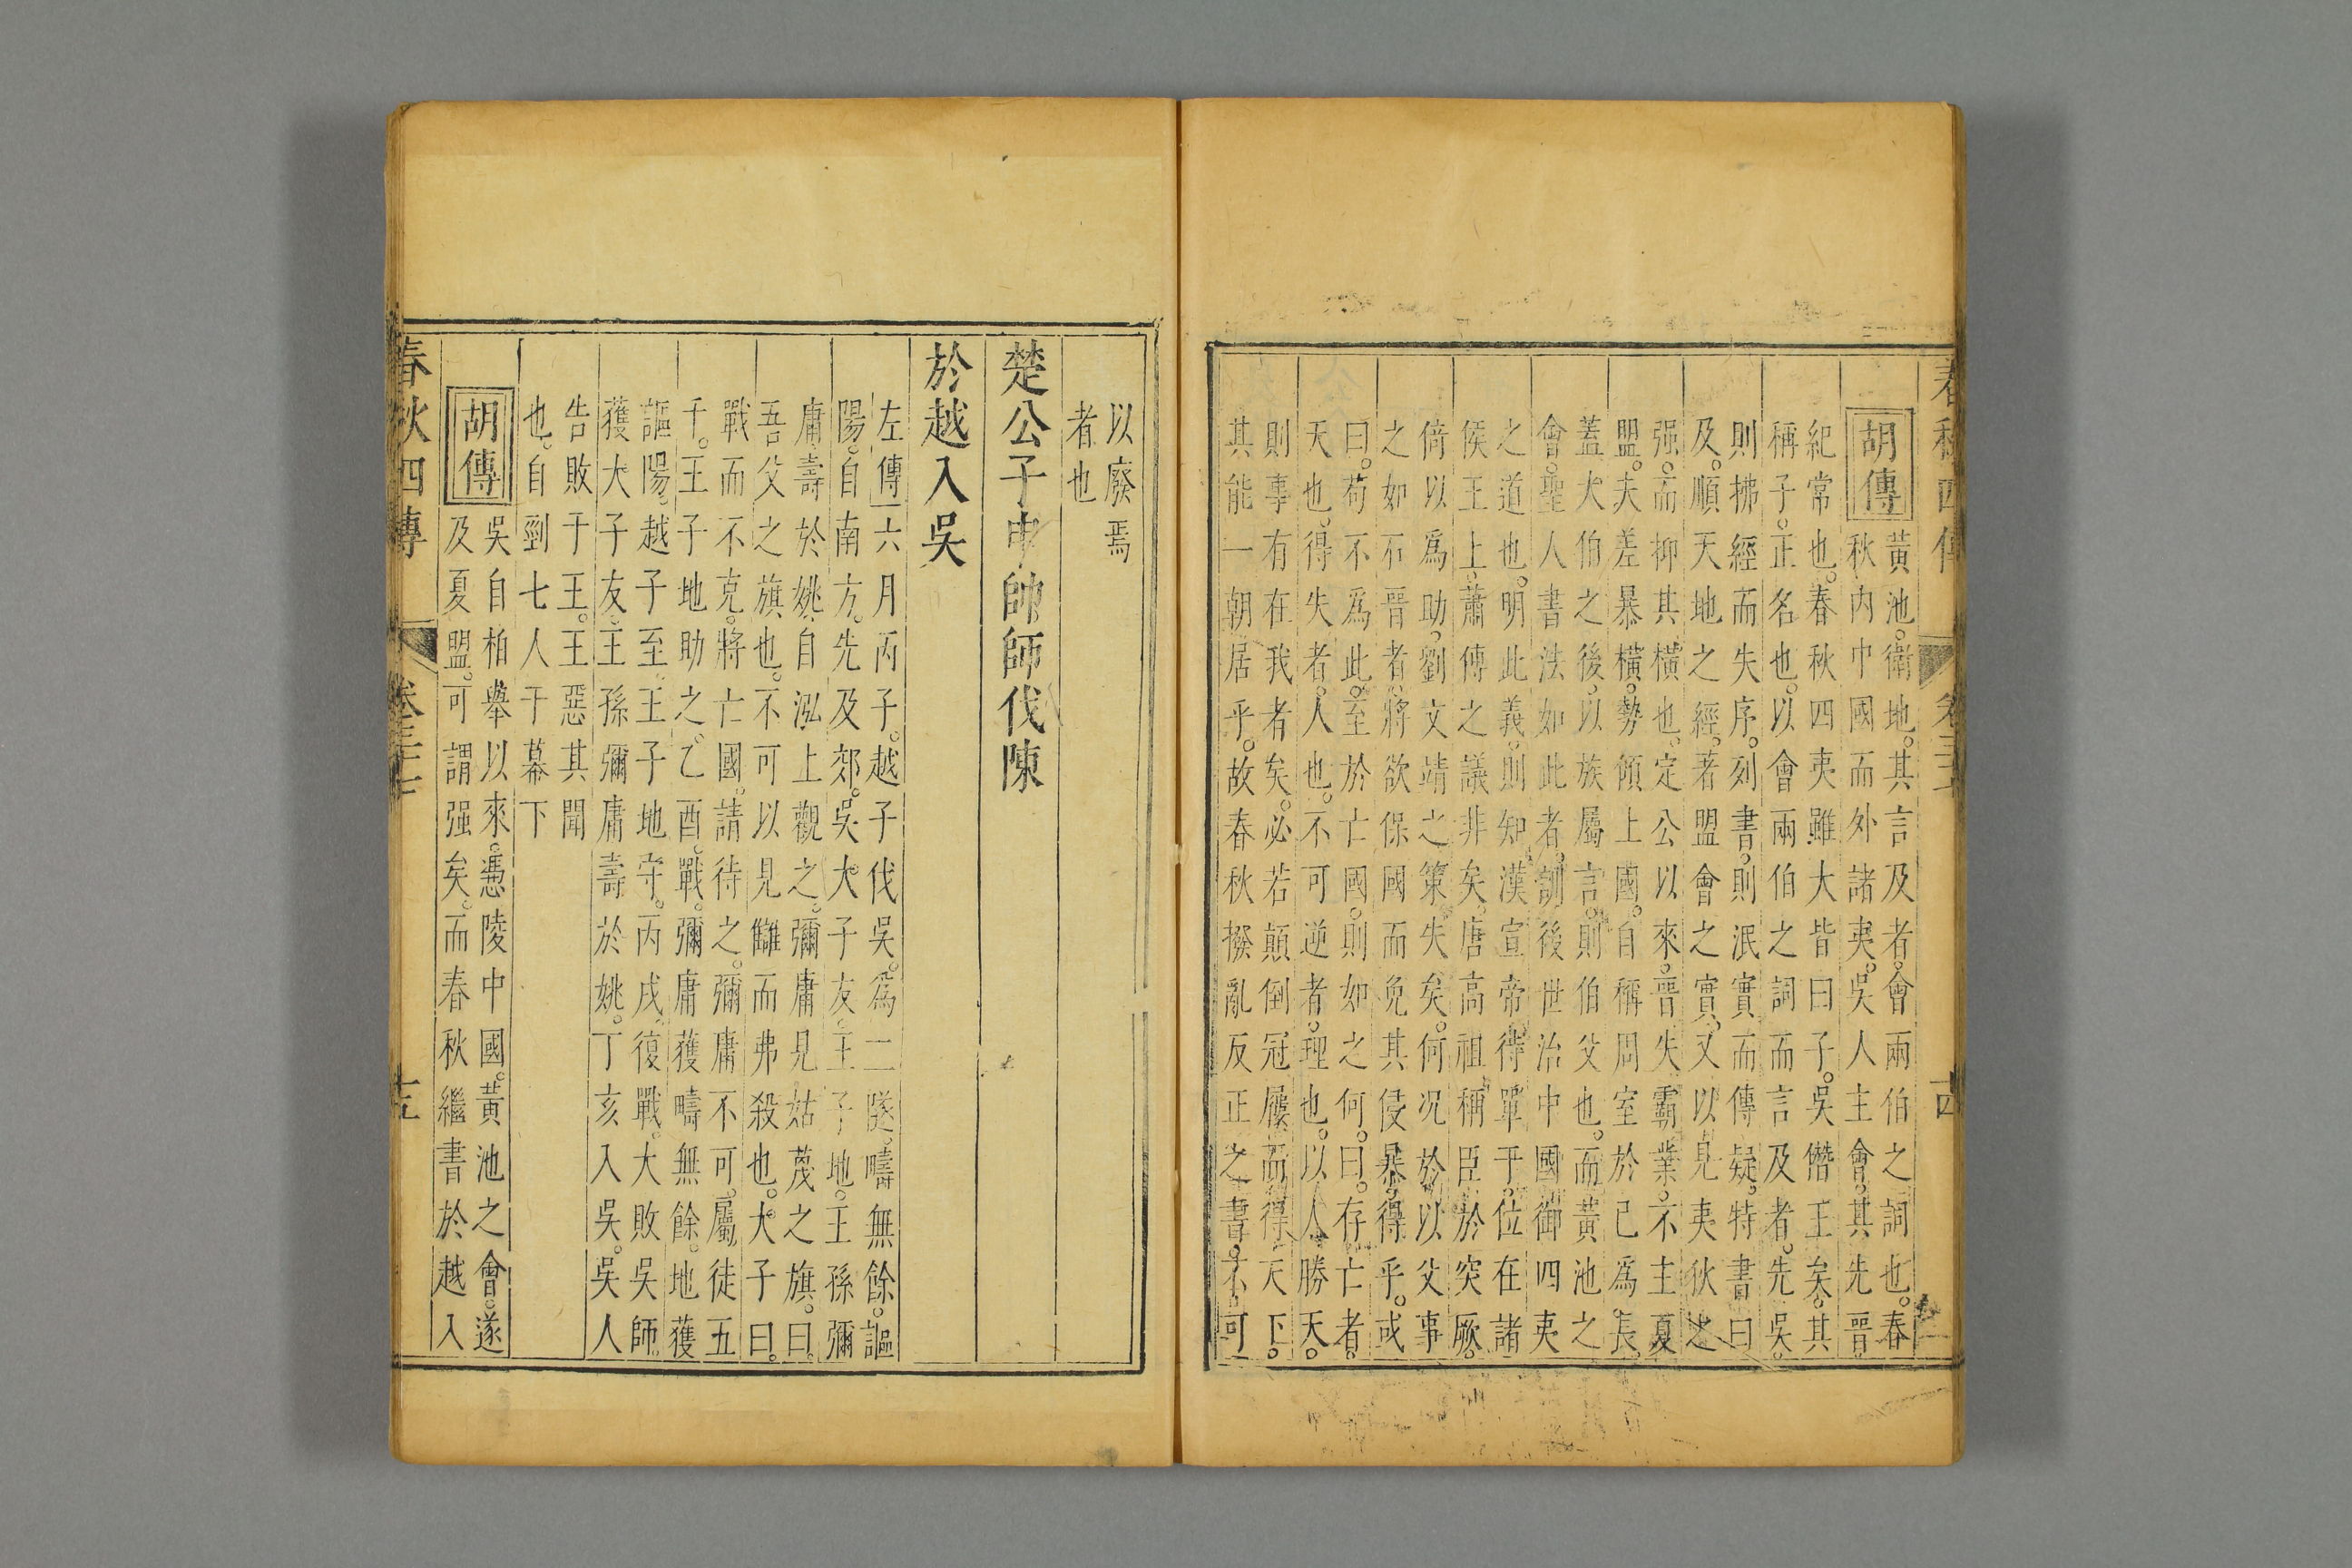 春秋四傳 卷三十七 十四
胡傳
黃池。衛地。其言及者。會兩伯之詞也。春
秋內中國而外諸夷。吳人主會。其先晉。
紀常也。春秋四夷雖大皆曰子。吳僭王矣。其
稱子。正名也。以會兩伯之詞而言及者。先吳。
則拂經而失序。列書。則泯實而傳疑。特書曰
及。順天地之經。著盟會之實。又以見夷狄之
强。而抑其橫也。定公以來。晉失霸業。不主夏
盟。夫差暴橫。勢傾上國。自稱周室於己爲長。
蓋大伯之後。以族屬言。則伯父也。而黃池之
會。聖人書法如此者。訓後世治中國御四夷
之道也。明此義。則知漢宣帝待單于。位在諸
侯王上。蕭傅之議非矣。唐高祖稱臣於突厥。
倚以爲助。劉文靖之策失矣。何况於以父事
之如石晉者。將欲保國而免其侵暴。得乎。或
曰。苟不爲此。至於亡國。則如之何。曰。存亡者。
天也。得失者。人也。不可逆者。理也。以人勝天。
則事有在我者矣。必若顛倒冠屨而得天下。
其能一朝居乎。故春秋撥亂反正之書。不可
以廢焉
者也
楚公子申帥師伐陳
於越入吳
左傳六月丙子。越子伐吳。爲二隧。疇無餘。謳
陽。自南方。先及郊。吳大子友。王子地。王孫彌
庸。壽於姚。自泓上觀之。彌庸見姑蔑之旗。曰。
吾父之旗也。不可以見讎而弗殺也。大子曰。
戰而不克。將亡國。請待之。彌庸不可。屬徒五
千。王子地助之。乙酉。戰。彌庸獲疇無餘。地獲
謳陽。越子至。王子地守。丙戌。復戰。大敗吳師。
獲大子友。王孫彌庸壽於姚。丁亥入吳。吳人
告敗于王。王惡其聞
也。自剄七人于幕下
胡傳
吳自柏舉以來。憑陵中國。黃池之會。遂
及夏盟。可謂强矣。而春秋繼書於越入
春秋四傳 卷三十七 十五